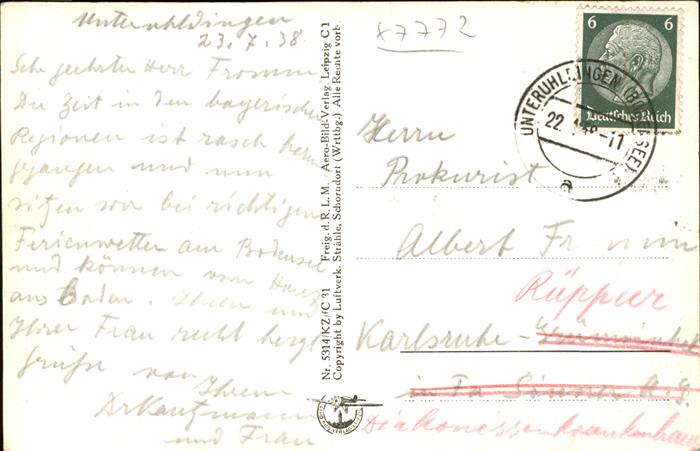 Unteruhldingen
23.7.38.
Sehr geehrter Herr Fromm
Die Zeit in den bayerischen
Regionen ist rasch herum
gegangen und nun
sitzen wir bei richtigem
Ferienwetter am Bodensee
und können vom Haus
aus Baden. Ihnen und
Ihrer Frau recht herzl
Grüße von
Ihrem
Dr Kaufmann
und Frau
Nr. 5314/KZ/(C 31 Freig. d. R. L. M. Aero-Bild-Verlag Leipzig C 1
Copyright by Luftverk. Strähle, Schorndorf (Wrttbg.) Alle Rechte vorb.
87772
6 6
Deutsches Reich
UNTERUHLDINGEN (BODENSEE)
22. 38-11
a
Herrn
Prokurist
Albert Fromm
Rüppur
Karlsruhe-
in Fa Sinner A.G.
Diakonissenkrankenhaus